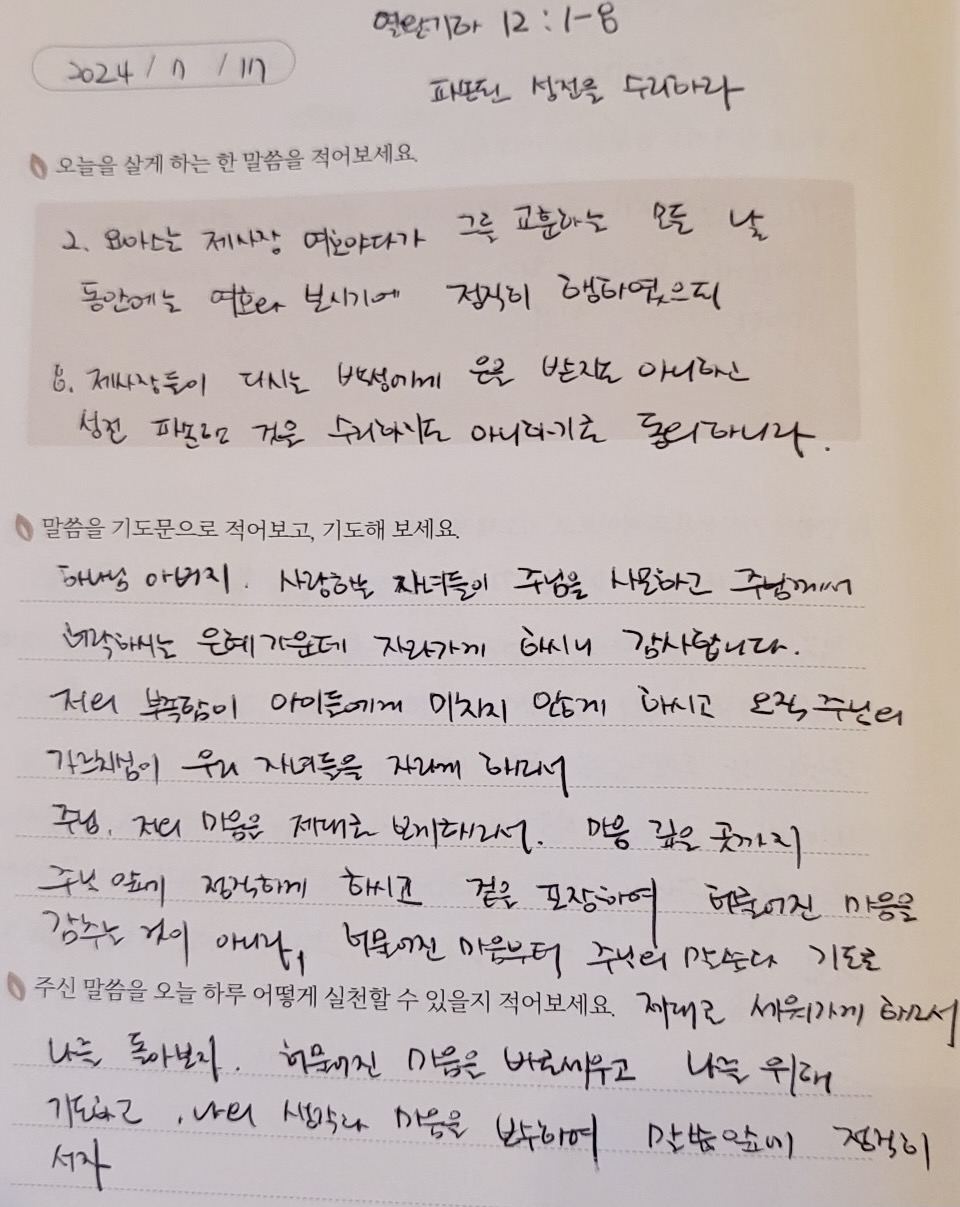 열왕기하 12:1-8
2024 / 11 / 17
파손된 성전을 수리하라
오늘을 살게 하는 한 말씀을 적어보세요.
2. 요아스는 제사장 여호야다가 그를 교훈하는 모든 날
동안에는 여호와 보시기에 정직히 행하였으되
8. 제사장들이 다시는 백성에게 은을 받지도 아니하고
성전 파손한 것을 수리하지도 아니하기로 동의하니라.
말씀을 기도문으로 적어보고, 기도해 보세요.
하나님 아버지. 사랑하는 자녀들이 주님을 사모하고 주님께서
허락하시는 은혜 가운데 자라가게 하시니 감사합니다.
저의 부족함이 아이들에게 미치지 않게 하시고 오직 주님의
가르치심이 우리 자녀들을 자라게 하소서
주님. 저의 마음을 제대로 보게하소서. 마음 깊은 곳까지
주님 앞에 정직하게 하시고 겉을 포장하여 허물어진 마음을
감추는 것이 아니라, 허물어진 마음부터 주님의 말씀과 기도로
주신 말씀을 오늘 하루 어떻게 실천할 수 있을지 적어보세요. 제대로 세워가게 하소서
나를 돌아보자. 허물어진 마음을 바로세우고 나를 위해
기도하고, 나의 생각과 마음을 보수하여 말씀앞에 정직히
서자